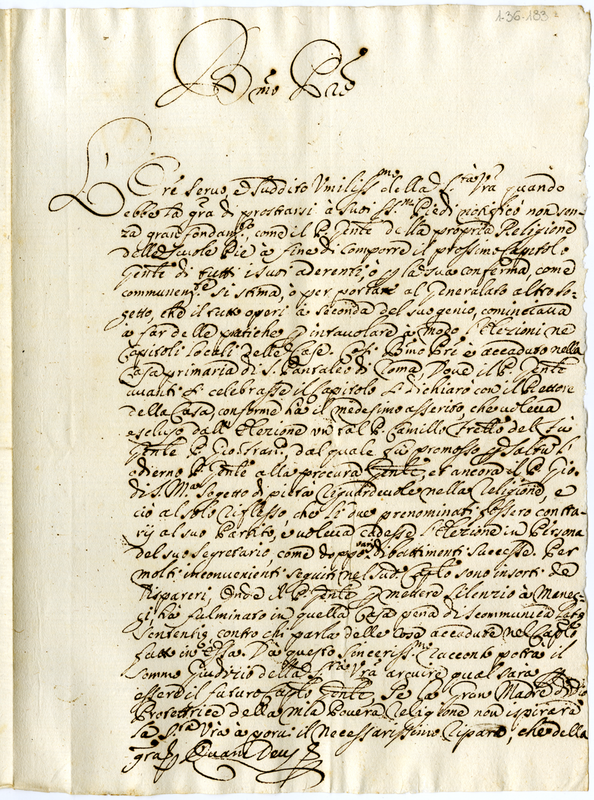 1-36-183
B.mo P.re
servo, e suddito Umiliss.mo della S.tà V.ra quando
ebbe la gr.a di prostrarsi à suoi SS.mi Piedi notificò non sen-
za gran fondam.to, come il P. Gen.le della propria Religione
delle Scuole Pie à fine di comporre il prossimo Capitolo
Gen.le di tutti i suoi aderenti, o p la sua conferma, come
communem.te si stima, o per portare al Generalato altro so-
getto, che il tutto operi à seconda del suo genio, cominciava
à far delle pratiche p intavolare à modo l'Elezioni ne
Capitoli locali delle Case. Così B.mo P.re è accaduto nella
Casa primaria di S. Pantaleo di Roma dove il P. Gen.le
avanti si celebrasse il Capitolo si dichiarò con il P. Rettore
della Casa, conforme hà il medesimo asserito, che voleva
escluso dall'Elezione un tal P. Camillo
P. Gio: dal quale fù promosso
odierno P. Gen.le alla procura Gen.le et ancora il P. Gio:
di S. M.a Sogetto di pietra riguardevole nella Religione, e
ciò al solo riflesso che li due prenominati fossero contra-
rij al suo Partito, e voleva cadesse l'Elezione in Persona
del suo Segretario, come doppo varij dibattimenti successe. Per
molti inconvenienti seguiti nel sud.o Cap.lo sono insorti de
dispareri, Onde il P. Gen.le p mettere silenzio à
hà fulminato in quella Casa pena di scommunica lata
sententiae contro chi parla delle cose accadute nel Cap.lo
fatto in essa. Da questo sincerissimo racconto potrà il
sommo Giudizio della S.tà V.ra arguire qual sarà p
essere il futuro Cap.lo Gen.le, se la Gran Madre di Dio
Protettrice della mia Povera Religione non ispirarà
la S.tà V.ra a porvi il necessarissimo riparo, che della
gr.a Quam Deus